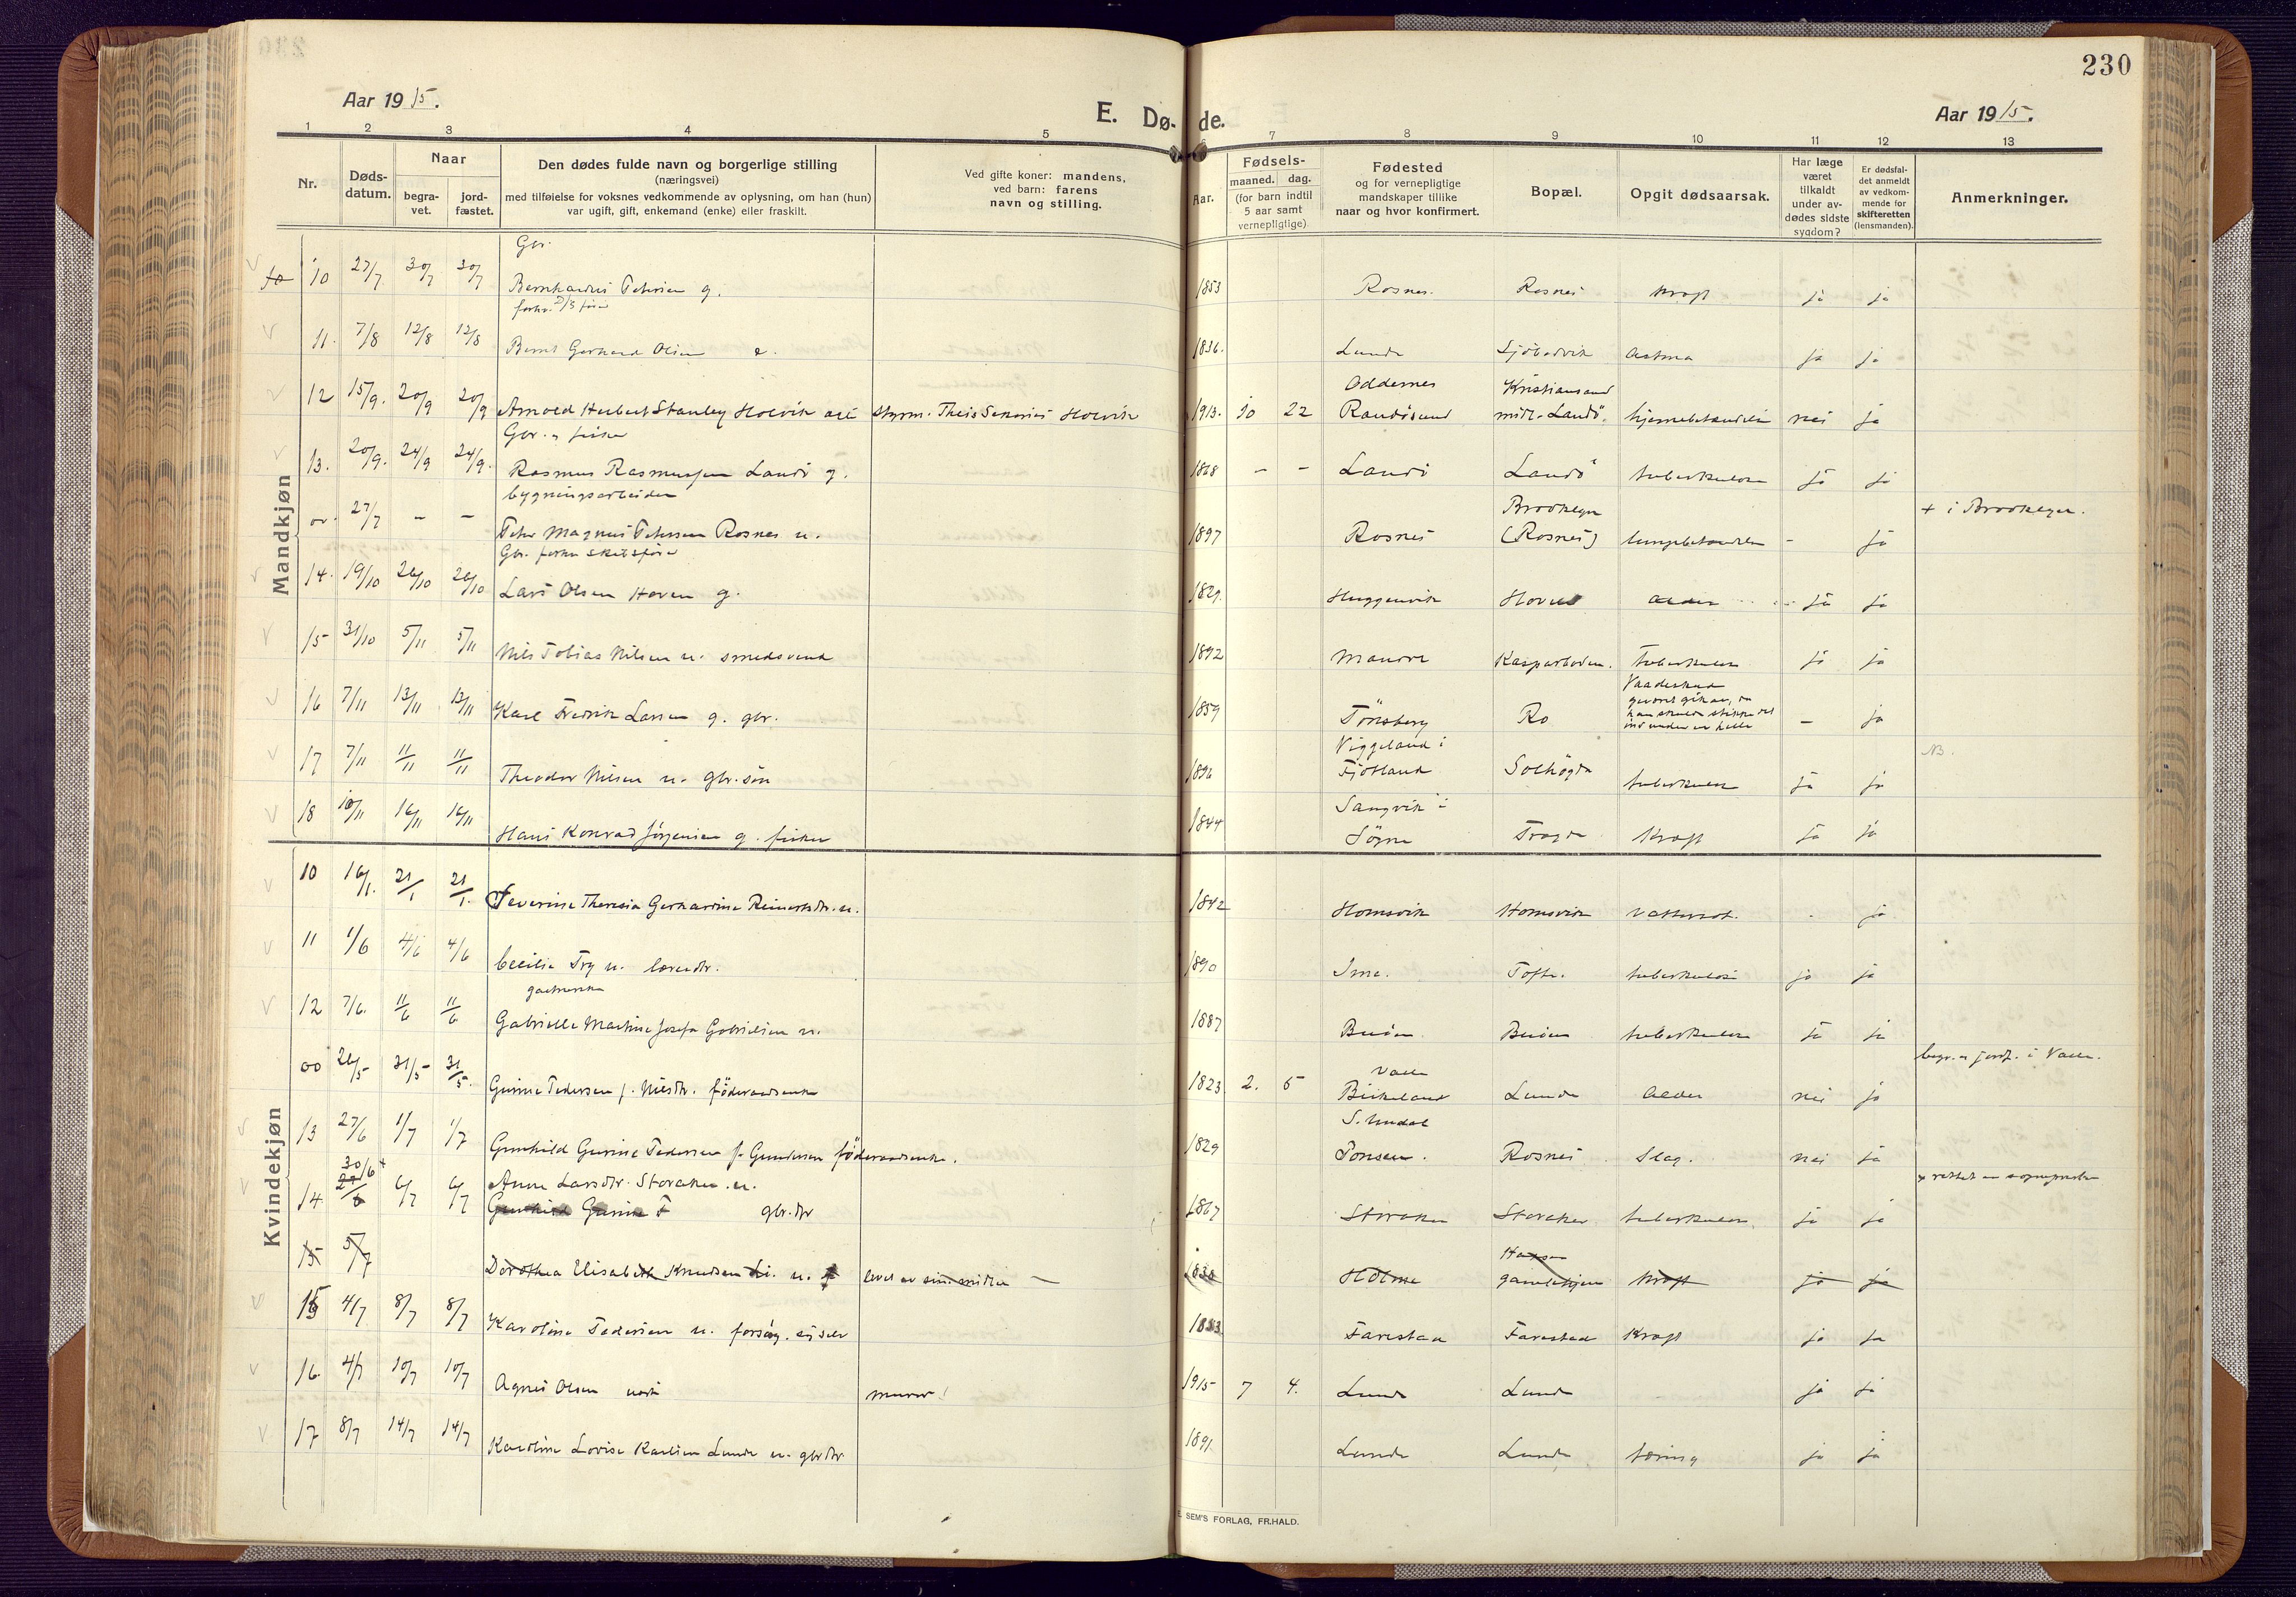 230
Aar 1915.
E. Dø-de.
Aar 1915.
1 2 3 4 5 7 8 9 10 11 12 13
Nr.
Døds-
datum.
Naar
begra-
vet.
jord-
fæstet.
Den dødes fulde navn og borgerlige stilling
(næringsvei)
med tilføielse for voksnes vedkommende av oplysning, om han (hun)
var ugift, gift, enkemand (enke) eller fraskilt.
Ved gifte koner: mandens,
ved barn: farens
navn og stilling.
Aar.
Fødsels-
maaned. dag.
(for barn indtil
5 aar samt
vernepligtige)
Fødested
og for vernepligtige
mandskaper tillike
naar og hvor konfirmert.
Bopæl.
Opgit dødsaarsak.
Har læge
været
tilkaldt
under av-
dødes sidste
sygdom?
Er dødsfal-
det anmeldt
av vedkom-
mende for
skifteretten
(lensmanden).
Anmerkninger.
Mandkjøn
Gbr.
10 27/7 30/7 30/7 Bernhardus Petersen g. 1853 Rosnes. Rosnes kræft ja ja
11. 7/8 12/8 12/8 Bernt Gerhard Olsen e. 1836. Lunde astma ja ja
Oddernes Kristiansand
12 15/9. 20/9 20/9 Arnold Herbert Stanley Holvik styrm. Holvik 1913. 10 22 Randøsund midl. Landø. nei ja
Gbr. & fisker
13. 20/9. 24/9 24/9. Rasmus Rasmussen Landø g. 1868 - - Landø Landø tuberkulose ja ja
bygningsarbeider
Brooklyn
+ i Brooklyn.
27/7 - - Peter Magnus Petersen Rosnes u. 1897 Rosnes (Rosnes) - ja
Gbr. forhen skibsfører
14. 19/10 26/10 26/10 Lars Olsen Hoven g. 1829 Huggenvik alder ja ja
15 31/10 5/11 5/11 Nils Tobias Nilsen u. smedsvend 1892 Mandal tuberkulose ja ja
Vaadeskud
16 7/11 13/11 13/11 Karl Fredrik Larsen g. gbr. 1859 Tönsberg Ro - ja
Viggeland i
NB.
17 7/11 11/11 11/11 Theodor Nilsen u. gbr. søn 1896 Fjotland Solhøgda tuberkulose ja ja
Sangvik i
18 10/11 16/11 16/11 Hans Konrad Jørgensen g. fisker 1844 Søgne Tregde kræft ja ja
Kvindekjøn
10 16/1. 21/1 21/1. Severine Theresia Gerhardine Reinertsdtr. u. 1842 Homsvik Homsvik vattersot. ja
11 1/6 4/6 4/6 Cecilie Try u. 1890 Ime. Tofte. tuberkulose ja ja
12 7/6. 11/6 11/6 Gabrielle Martine Josefa Gabrielsen u. 1887 Buøen Buøen tuberkulose ja ja
begr. & jordf. i Valle.
Valle
00 26/5 31/5 31/5. Gurine Pedersen f. Nilsdtr. føderaadsenke 1823 2. 5 Birkeland Lunde alder nei ja
S. Undal
13 27/6 1/7 1/7 Gunhild Gurine Pedersen f. Gundersen føderaadsenke. 1829 Rosnes Slag. nei ja
30/6 + Anne Larsdtr. Storaker. u.
14 27/6 6/7 6/7 Gunhild Gurine P gbr. dtr 1867 Storaker Storaker tuberkulose. ja ja
15 5/7 Dorothea Elisabeth Knudsen u. levet av sine midler - 1838 Holme gamlehjem kræft ja ja
15 4/7 8/7 8/7 Karoline Pedersen u. forsørg. sig selv Farestad Farestad kræft ja ja
16. 4/7 10/7 10/7 Agnes Olsen murer 1915 7 4. Lunde Lunde ja ja
17 8/7 14/7 14/7 Karoline Lovise Karlsen Lunde u. gbrdtr 1891. Lunde Lunde tæring ja ja
E. SEM'S FORLAG, FR.HALD.